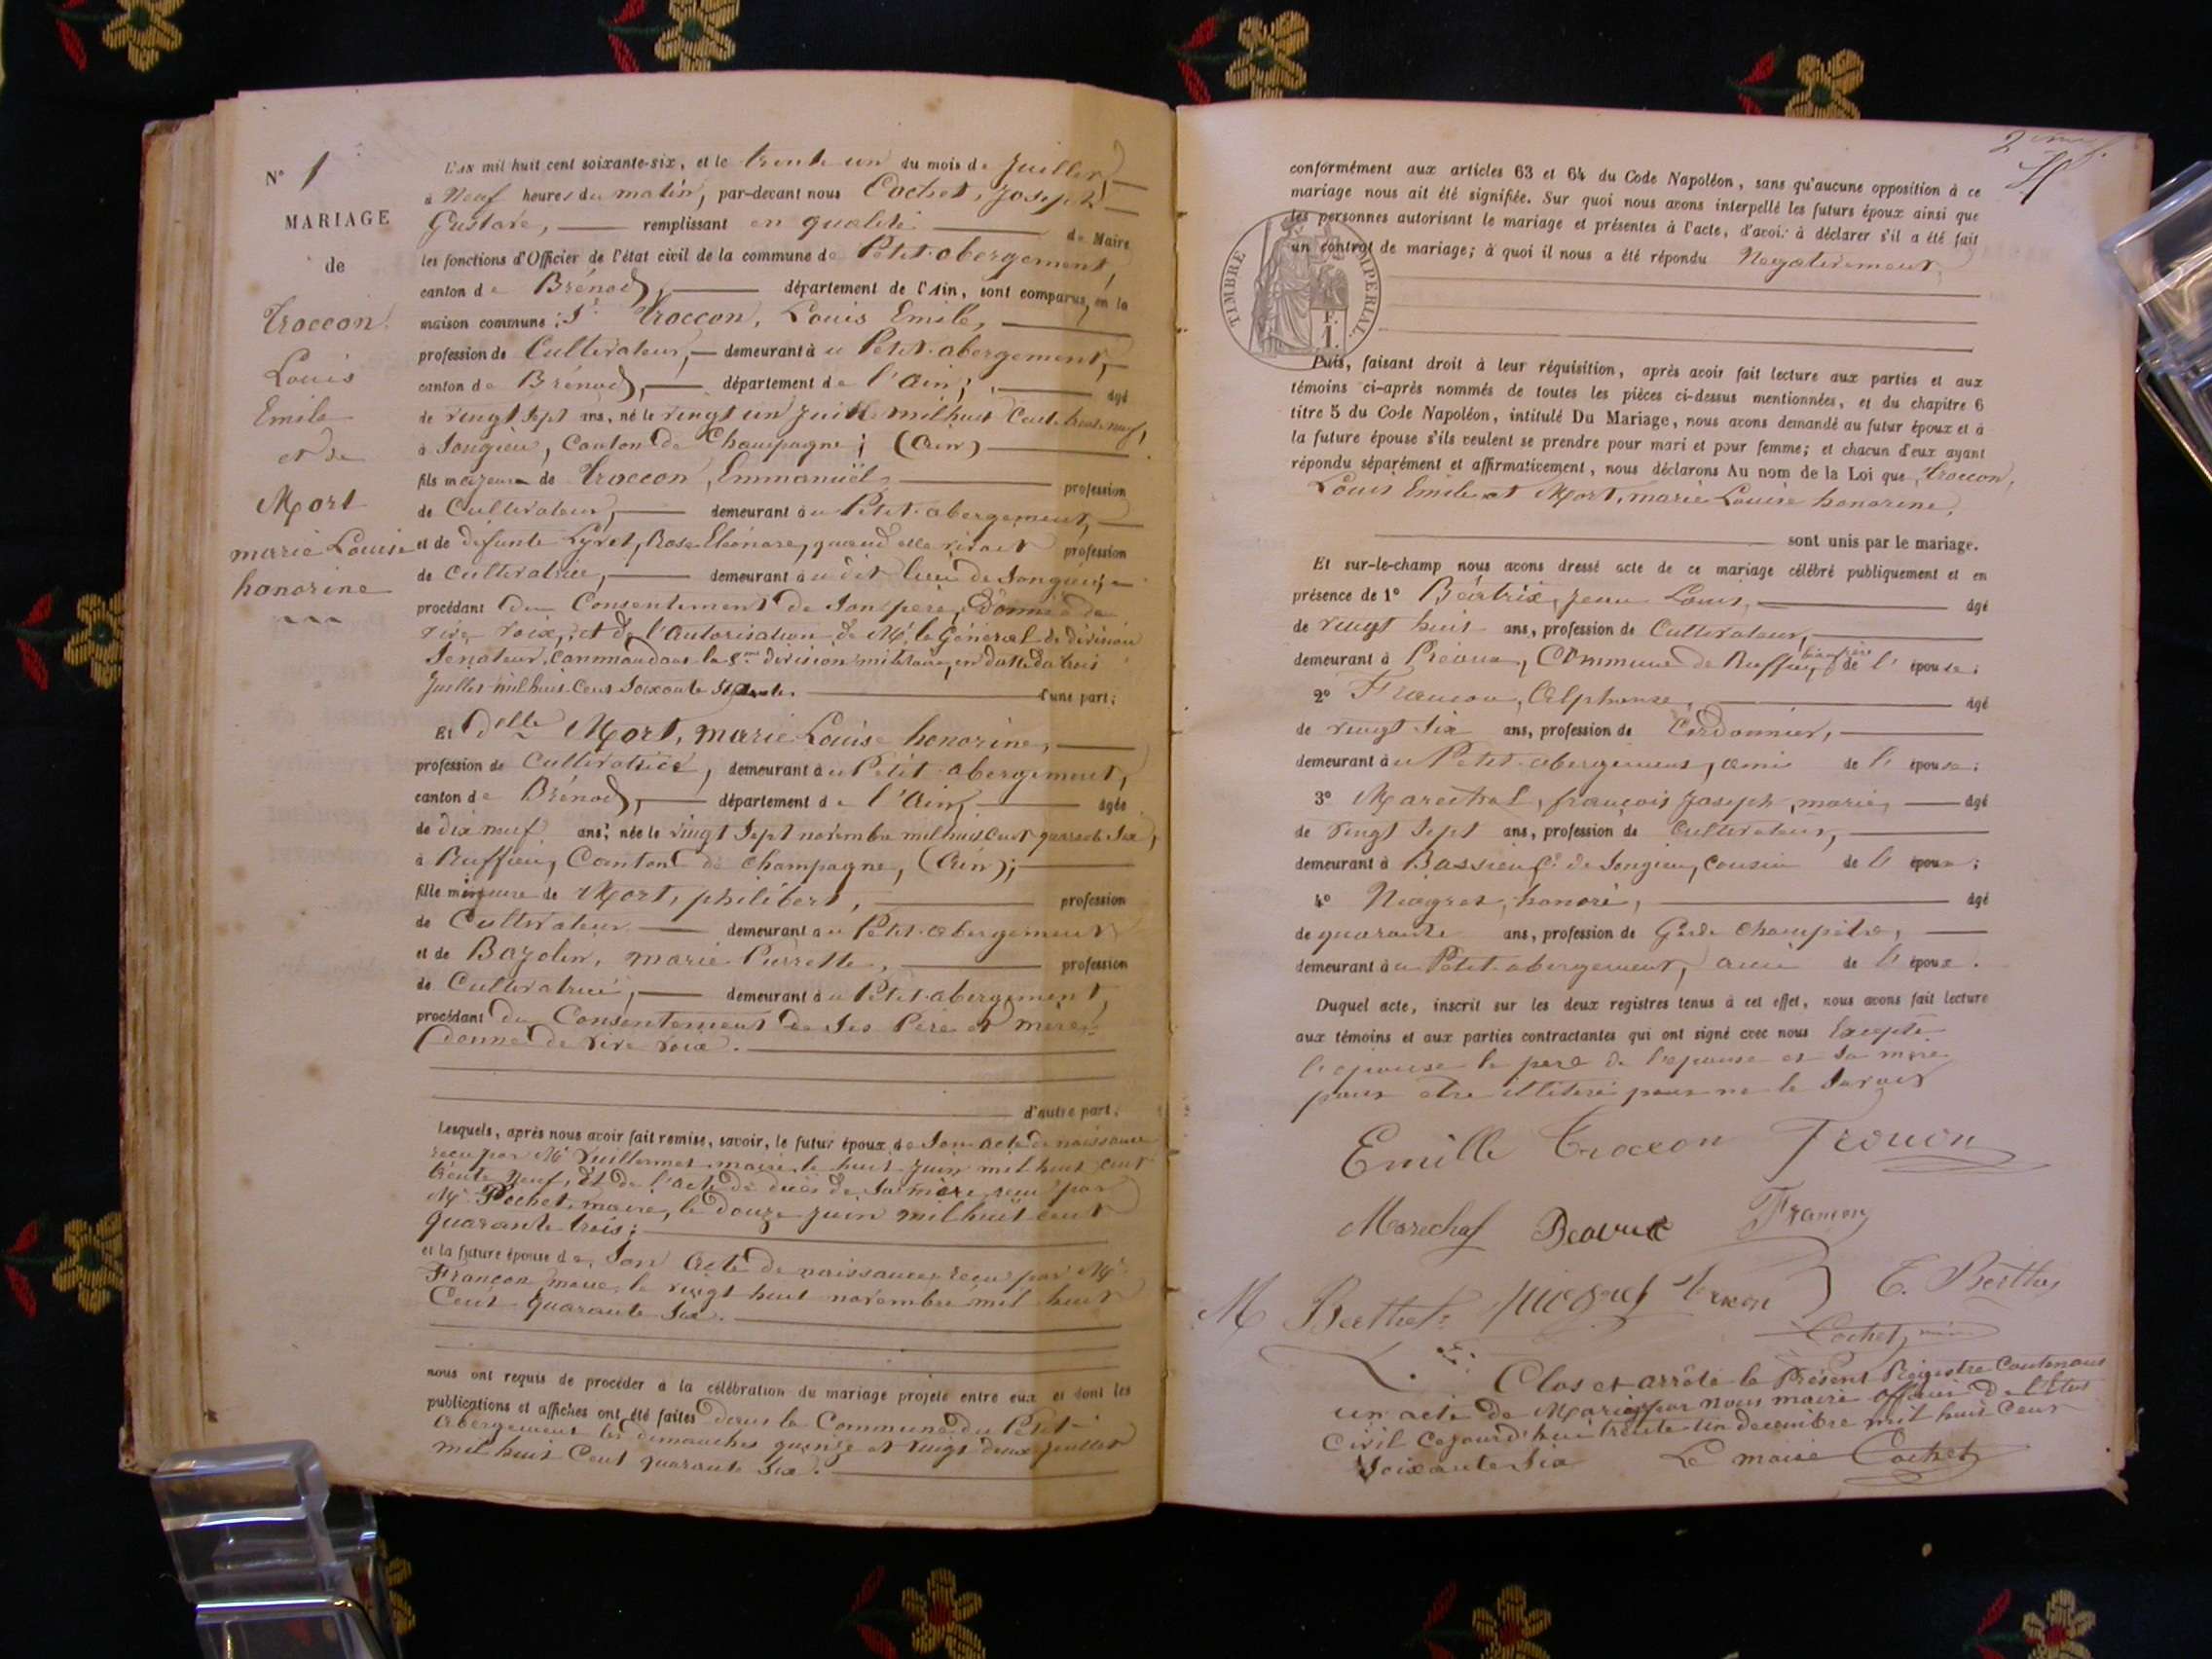 N° 1
MARIAGE
de
Troccon
Louis
Emile
et de
Mort
marie Louise
honorine
L'AN mil huit cent soixante-six, et le trente un du mois de Juillet,
à Neuf heures du matin, par-devant nous Cochet, Joseph
Gustave, remplissant en qualité de Maire
les fonctions d'Officier de l'état civil de la commune de Petit-abergement,
canton de Brénod, département de l'Ain, sont comparus, en la
maison commune : Sr Troccon, Louis Emile,
profession de Cultivateur, demeurant à u Petit-abergement,
canton de Brénod, département de l'Ain; âgé
de vingt sept ans, né le vingt un juin mil huit Cent trente neuf,
à Songieu, Canton de Champagne; (Ain)
fils majeur de Troccon, Emmanuël, profession
de Cultivateur, demeurant au Petit-abergement,
et de défunte Lyvet, Rose Eléonore, quand elle vivait profession
de Cultivatrice, demeurant au dit lieu de Songieu;
procédant du Consentement de Son père, Donné de
vive voix, et de l'autorisation de Mr. le Général de division
Senateur, Commandant la 8me division militaire, en datte du trois
Juillet mil huit Cent Soixante d'une part;
Et delle Mort, marie Louise honorine,
profession de Cultivatrice, demeurant au Petit-abergement,
canton de Brénod, département de l'Ain, âgée
de dix neuf ans, née le vingt Sept novembre mil huit Cent quarante Six,
à Ruffieu, Canton de Champagne, (Ain);
fille mineure de Mort, philibert, profession
de Cultivateur demeurant au Petit-abergement
et de Bazolin, marie Pierrette, profession
de Cultivatrice, demeurant au Petit-abergement,
procédant du Consentement de Ses Père et mère
donné de vive voix.
d'autre part.
Lesquels, après nous avoir fait remise, savoir, le futur époux de Son acte de naissance
reçu par Mr Vuillermet maire, le huit Juin mil huit cent
trente Neuf, Et de l'acte de décès de Sa mère, reçu par
Mr. Pochet, maire, le douze juin mil huit cent
quarante trois;
et la future épouse de Son acte de naissance reçu par Mr
Françon, maire, le vingt huit novembre mil huit
Cent quarante Six.
nous ont requis de procéder à la célébration du mariage projeté entre eux et dont les
publications et affiches ont été faites dans la Commune du Petit-
abergement les dimanches quinze et vingt deux juillet
mil huit Cent quarante Six.
conformément aux articles 63 et 64 du Code Napoléon, sans qu'aucune opposition à ce
mariage nous ait été signifiée. Sur quoi nous avons interpellé les futurs époux ainsi que
les personnes autorisant le mariage et présentes à l'acte, d'avoir à déclarer s'il a été fait
un contrat de mariage; à quoi il nous a été répondu Negativement
TIMBRE IMPERIAL
F.
1.
Puis, faisant droit à leur réquisition, après avoir fait lecture aux parties et aux
témoins ci-après nommés de toutes les pièces ci-dessus mentionnées, et du chapitre 6
titre 5 du Code Napoléon, intitulé Du Mariage, nous avons demandé au futur époux et à
la future épouse s'ils veulent se prendre pour mari et pour femme; et chacun d'eux ayant
répondu séparément et affirmativement, nous déclarons Au nom de la Loi que Troccon,
Louis Emile et Mort, marie Louise honorine,
sont unis par le mariage.
Et sur-le-champ nous avons dressé acte de ce mariage célébré publiquement et en
présence de 1° Béatrix, Jean Louis, âgé
de vingt huit ans, profession de Cultivateur,
demeurant à Commune de Ruffieu, de l' épouse;
2° Françon, Alphonse, âgé
de vingt Six ans, profession de Cordonnier,
demeurant au Petit-abergement, ami de l' épouse;
3° Maréchal, françois Joseph, marie, âgé
de vingt Sept ans, profession de Cultivateur,
demeurant à Bassieu Ce. de Songieu, cousin de l' époux;
4° Niogret, honoré, âgé
de quarante ans, profession de Garde Champêtre,
demeurant au Petit-abergement, ami de l' époux.
Duquel acte, inscrit sur les deux registres tenus à cet effet, nous avons fait lecture
aux témoins et aux parties contractantes qui ont signé avec nous Excepté
l'epouse le pere de l'epouse et Sa mère
pour être illitéré pour ne le Savoir
Emille Troccon Trocon
Marechal Beatrix Françon
M Berthet Niogret E. Berthet
Cochet, maire
Clos et arrêté le Présent Régistre Contenant
un acte de Mariage par nous maire officier de l'Etat
Civil Cejourd'hui trente un decembre mil huit Cent
Soixante Six Le maire Cochet